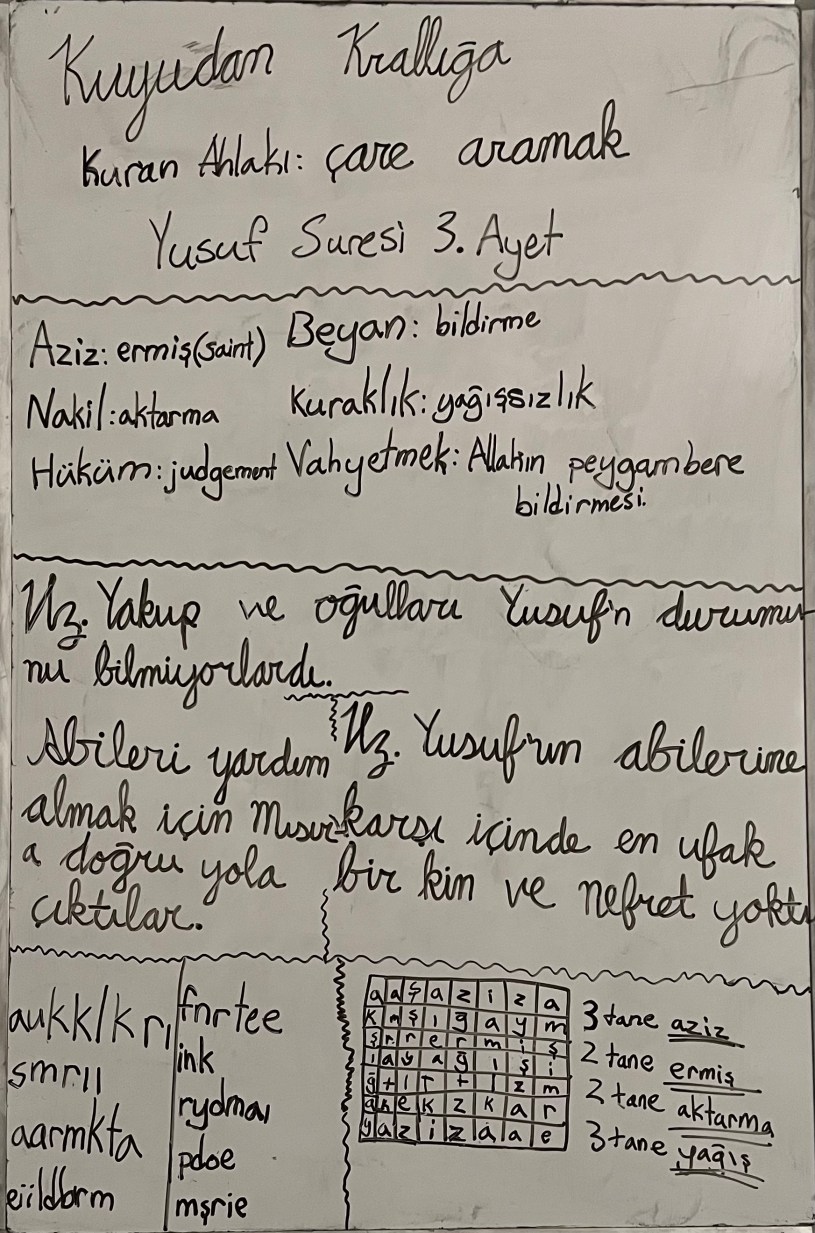 Kuyudan Krallığa
Kuran Ahlakı: çare aramak
Yusuf Suresi 3. Ayet
Aziz: ermiş(saint) Beyan: bildirme
Nakil: aktarma Kuraklık: yağışsızlık
Hüküm: judgement Vahyetmek: Allahın peygambere
bildirmesi.
Hz. Yakup ve oğulları Yusuf'n durumu
nu bilmiyorlardı.
Abileri yardım
almak için Mısır
a doğru yola
çıktılar.
Hz. Yusuf'un abilerine
karşı içinde en ufak
bir kin ve nefret yoktu
aukklkrı
smrıı
aarmkta
eiildbrm
fnrtee
ink
rydmaı
pdoe
mşrie
a a ş a z i z a
ş r r e r m i ş
ı a y a ğ ı ş i
y a z i z a a e
3 tane aziz
2 tane ermiş
2 tane aktarma
3 tane yağış